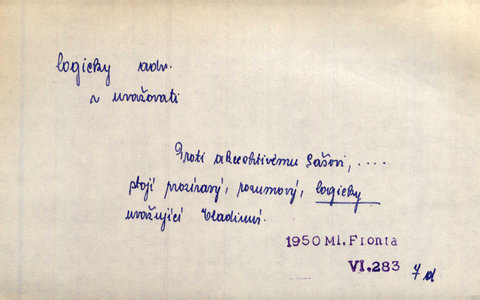 logicky adv.
~ uvažovati
Proti akcektivému Sášovi, ....
stojí prozíravý, rozumový, logicky
uvažující Vladimír.
1950 Ml. Fronta
VI.283 7d